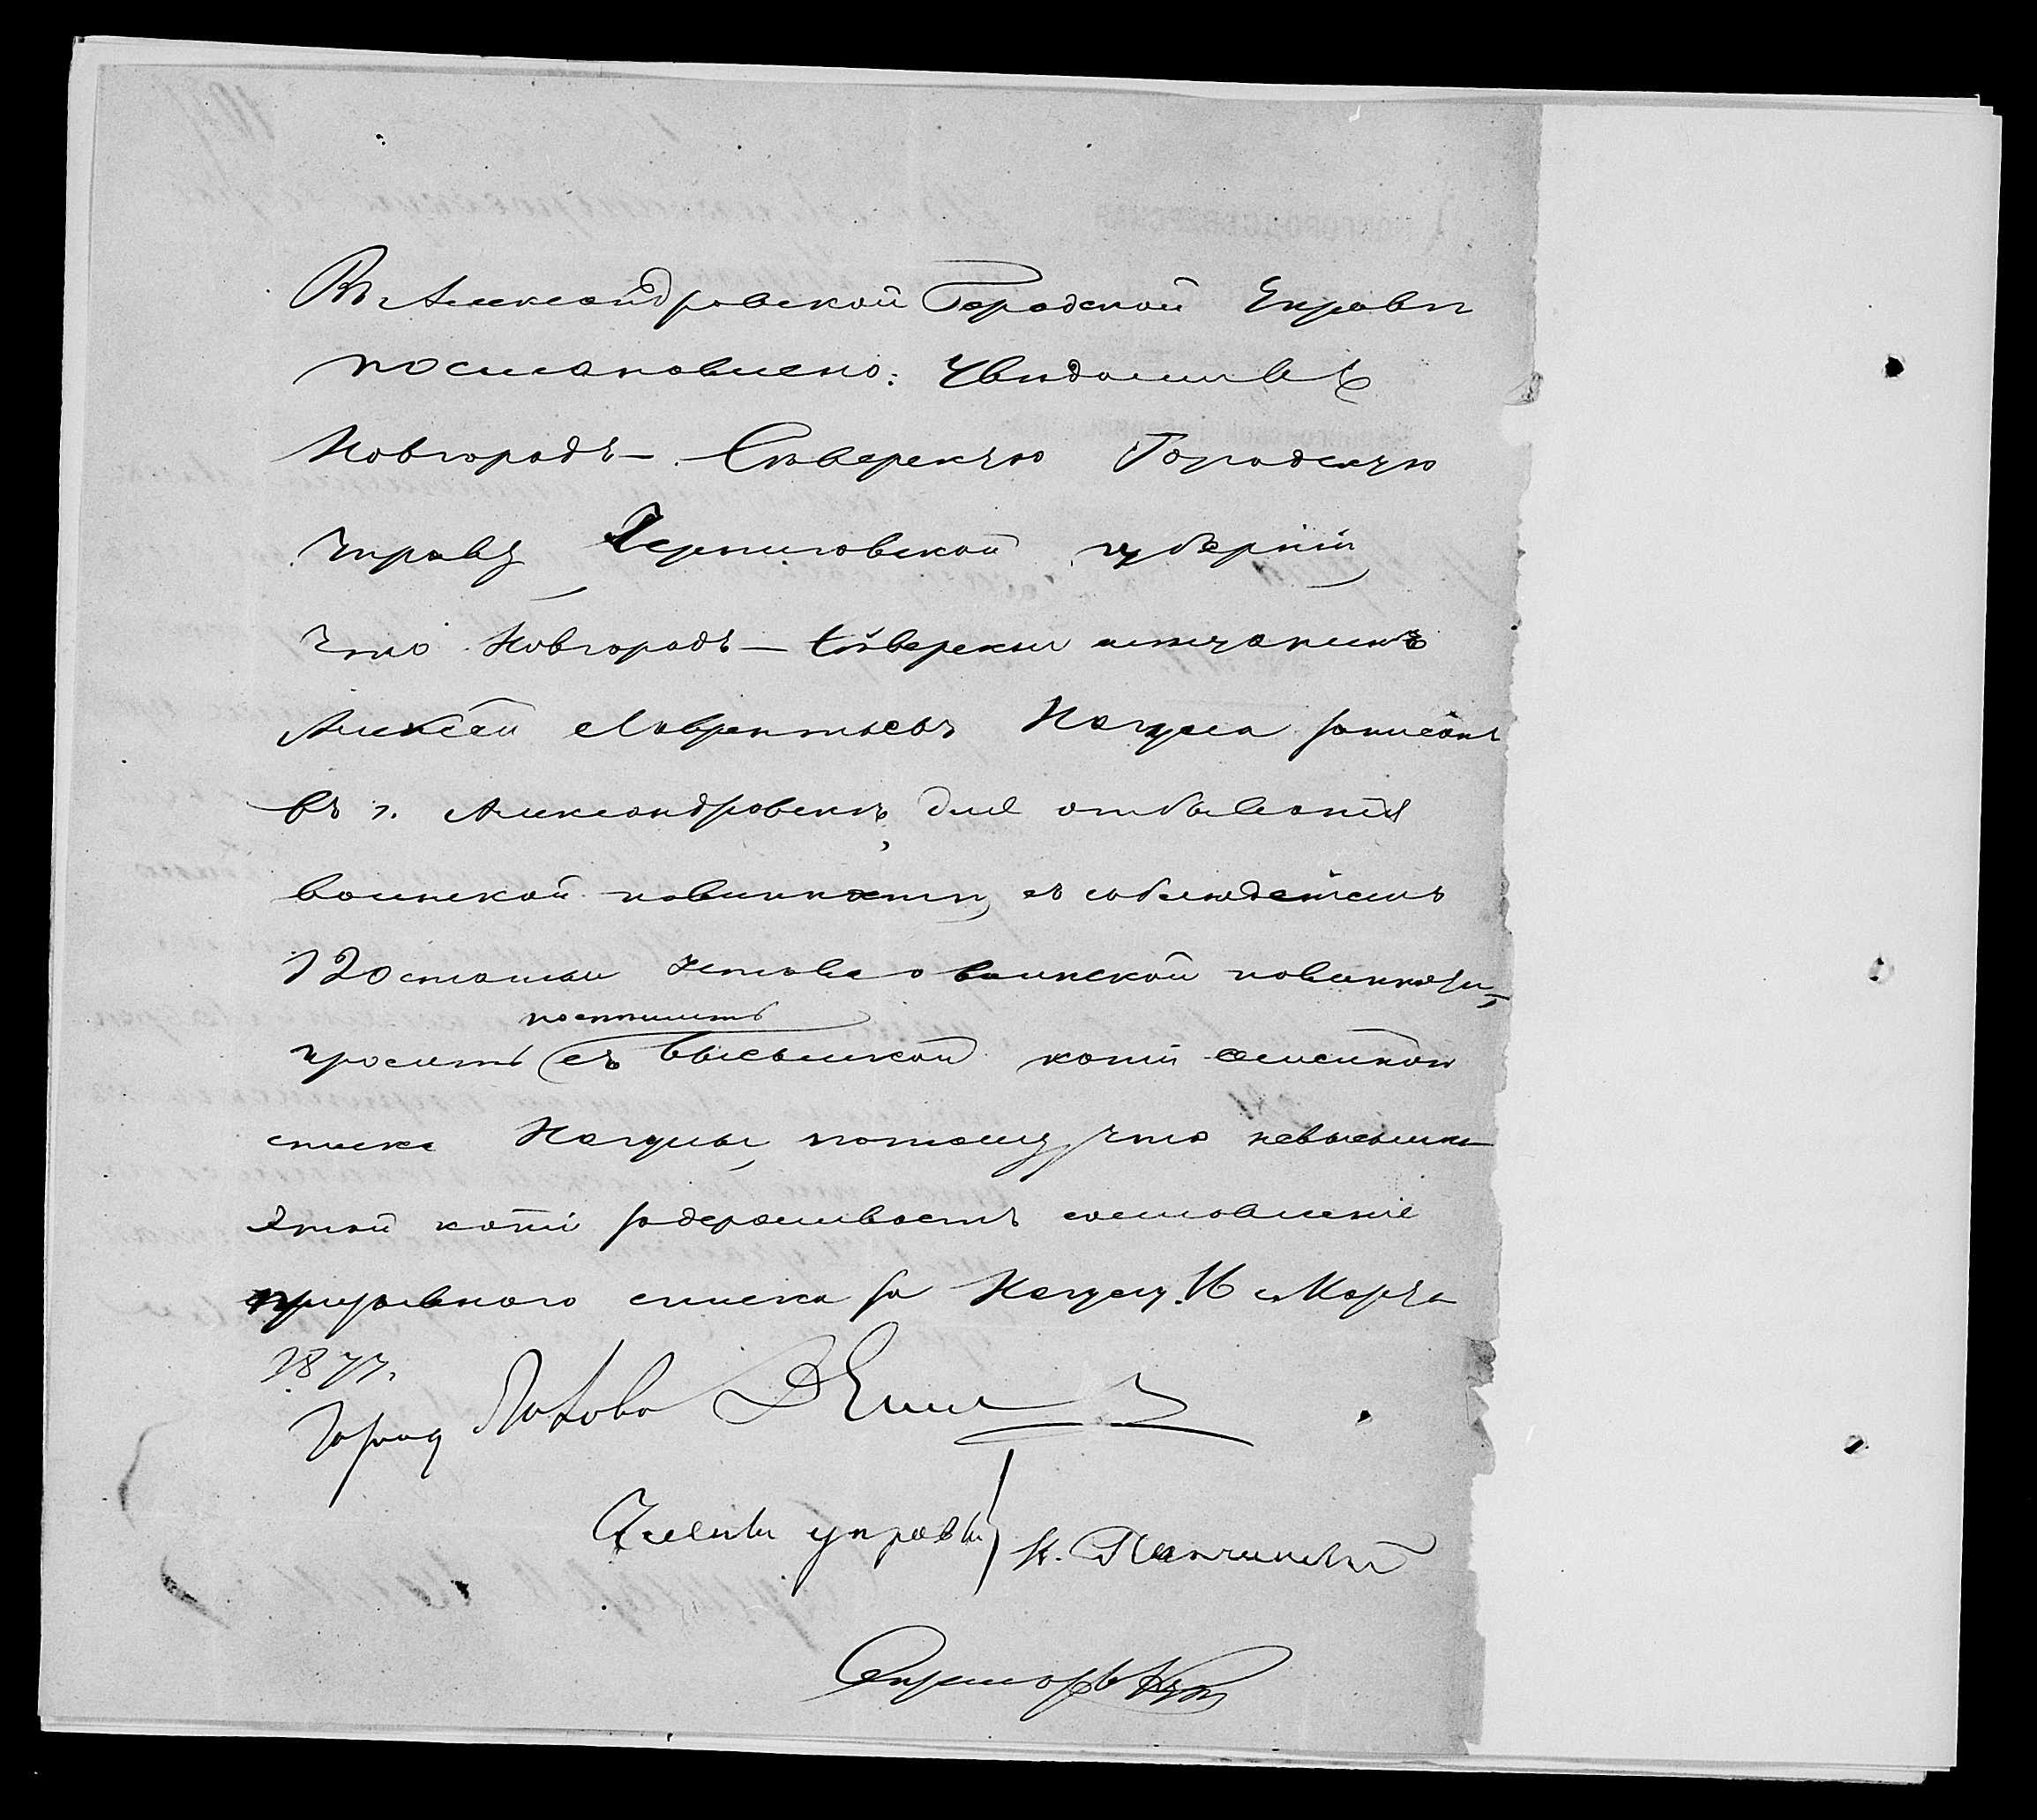 Въ Александровской Городской Управѣ
постановлено: Увѣдомивъ
Новгородъ-Сѣверскую Городскую
Управу, Черниговской губерніи,
что Новгородъ-Сѣверскій мѣщанинъ
Алексѣй Лаврентьевъ записанъ
въ г. Александровскѣ, для отбыванія
воинской повинности, съ соблюденіемъ
120 статьи устава о воинской повинности,
поспѣшить
просить съ высылкой копіи семейнаго
списка потому, что невысылка
этой копіи задерживаетъ составленіе
призывнаго списка за 16 Марта
1877.
Город Голова
Члены управы Н.
Секретарь